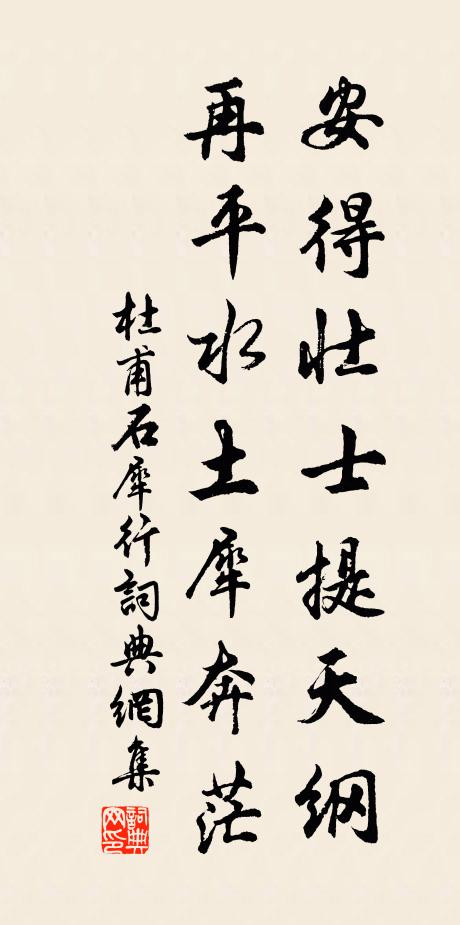 安得壮士提天纲
再平水土犀奔茫
杜甫石犀行詞典網集
詞典网印